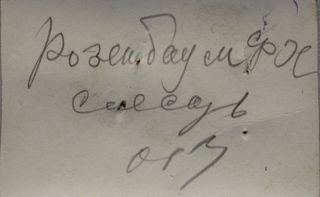 Розенбаум ФХ
слесарь